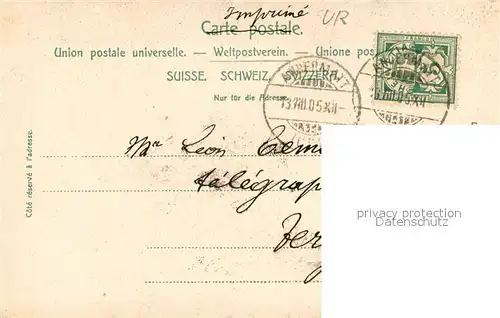 Imprimé UR
Carte postale.
Union postale universelle. — Weltpostverein. — Unione pos
SUISSE. SCHWEIZ. SVIZZERA.
Nur für die Adresse.
ANDERMATT
13.VIII.05.XII-
Côté réservé à l'adresse.
Mr Léon
télégrap
privacy protection
Datenschutz